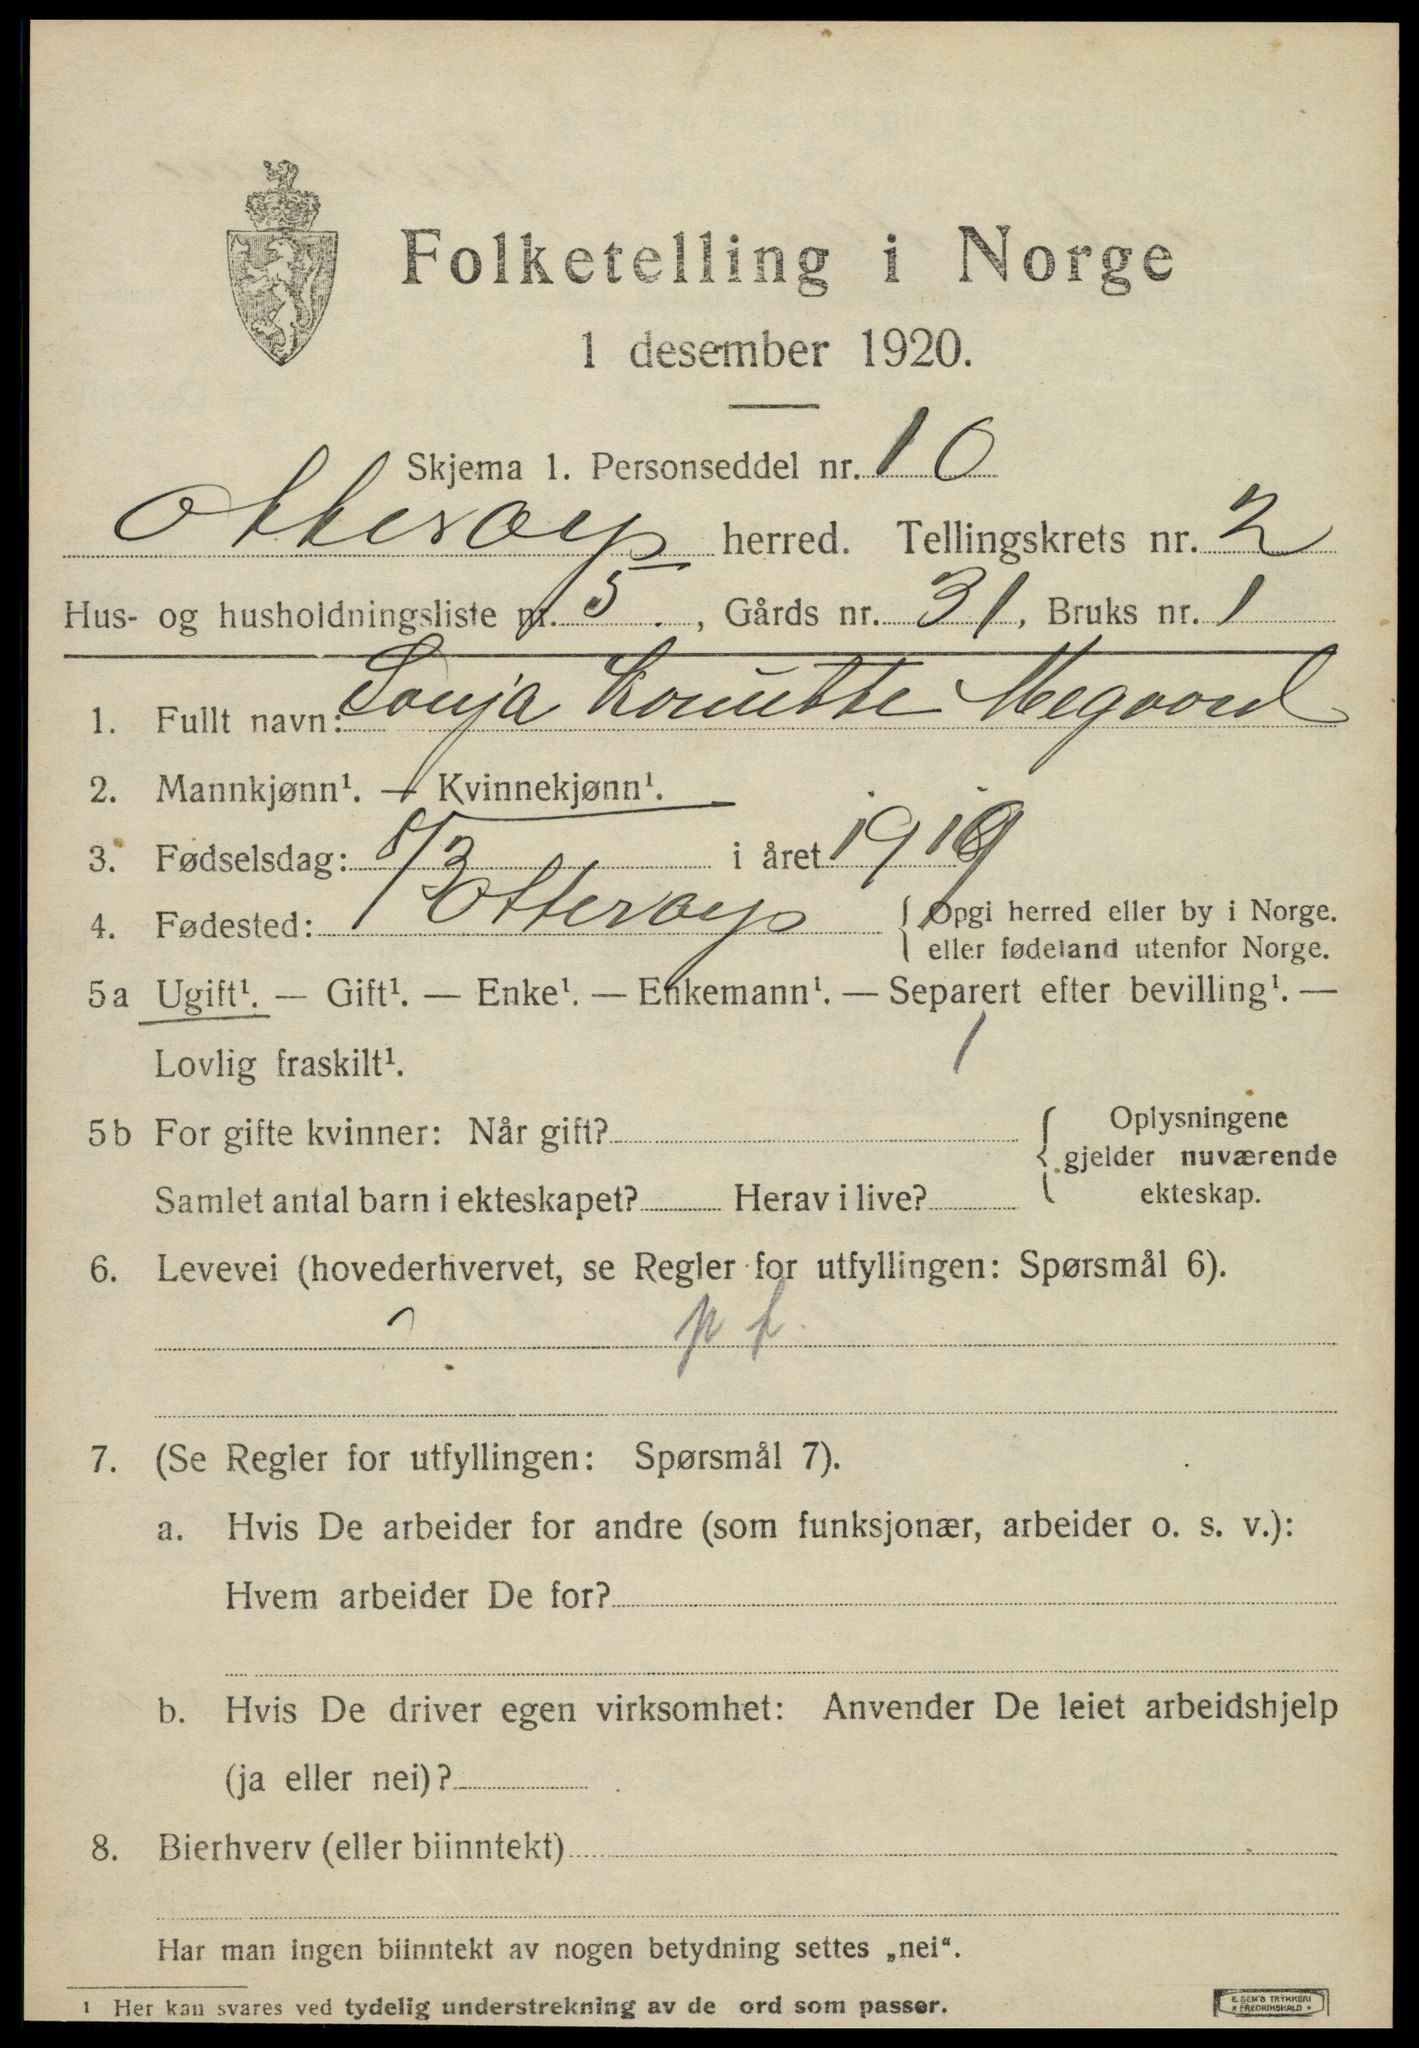 Folketelling i Norge
1 desember 1920.
Skjema 1. Personseddel nr. 10
Otterøy herred. Tellingskrets nr. 2
Hus- og husholdningsliste nr. 5, Gårds nr. 31, Bruks nr. 1
1. Fullt navn: Sonja Megaard
2. Mannkjønn¹. — Kvinnekjønn¹.
3. Fødselsdag: 8/3 i året 1919
4. Fødested: Otterøy { Opgi herred eller by i Norge.
eller fødeland utenfor Norge.
5a Ugift¹. — Gift¹. — Enke¹. — Enkemann¹. — Separert efter bevilling¹. —
Lovlig fraskilt¹.
1
5b For gifte kvinner: Når gift? { Oplysningene
gjelder nuværende
ekteskap.
Samlet antal barn i ekteskapet? Herav i live?
6. Levevei (hovederhvervet, se Regler for utfyllingen: Spørsmål 6).
7. (Se Regler for utfyllingen: Spørsmål 7).
a. Hvis De arbeider for andre (som funksjonær, arbeider o. s. v.):
Hvem arbeider De for?
b. Hvis De driver egen virksomhet: Anvender De leiet arbeidshjelp
(ja eller nei)?
8. Bierhverv (eller biinntekt)
Har man ingen biinntekt av nogen betydning settes „nei“.
1 Her kan svares ved tydelig understrekning av de ord som passer.
E. SEM'S TRYKKERI
* FREDRIKSHALD *